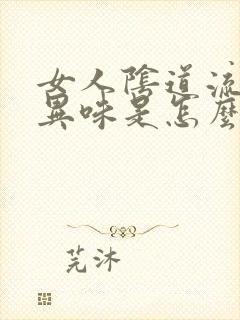 女人陰道流
異味是怎麼
芫沐